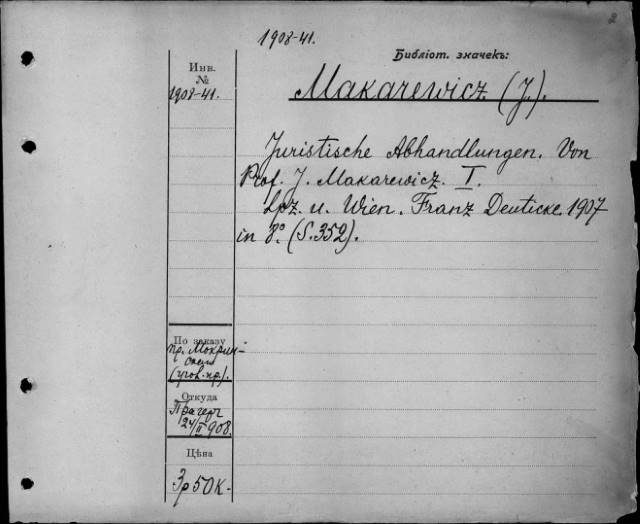 2
1908-41.
Библіот. значекъ:
Инв.
№
1908-41.
Makarewicz (J.).
Juristische Abhandlungen. Von
Prof. J. Makarewicz. I.
Lpz. u. Wien. Franz Deuticke 1907
in 8º. (S. 352).
По заказу
пр. Мокрин-
скаго
(угов. пр.).
Откуда
Прагеръ
24/II 908.
Цѣна
3р 50к.